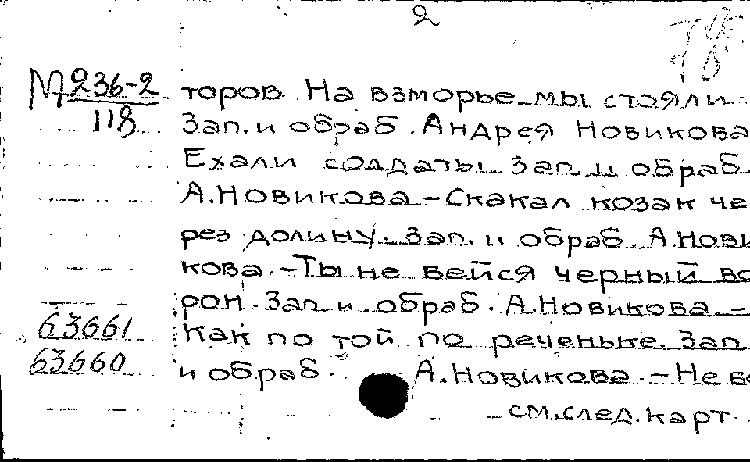 2
78
М 236-2
118
торов. На взморье мы стояли.
Зап. и обраб. Андрея Новикова
Ехали солдаты. Зап. и обраб.
А.Новикова – Скакал козак че
рез долину. Зап. и обраб. А.Нови
кова. – Ты не вейся черный во
рон. Зап. и обраб. А.Новикова –
63661
Как по той по реченьке. Зап.
63660
и обраб. А.Новикова. – Не во
– см.след.карт.